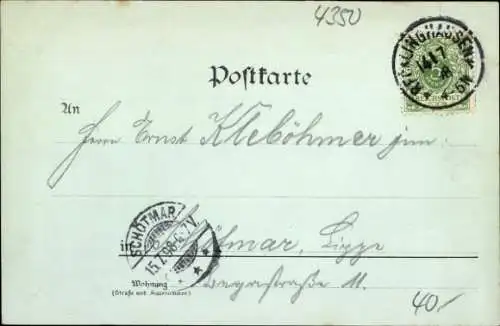 4350
RECKLINGHAUSEN
14 7
Postkarte
An
Herrn Ernst Kleböhmer jun.
SCHÖTMAR
15.7.98.6-7V.
in Schötmar, Lippe
Wohnung
(Straße und Hausnummer)
Begastraße 11.
40.-